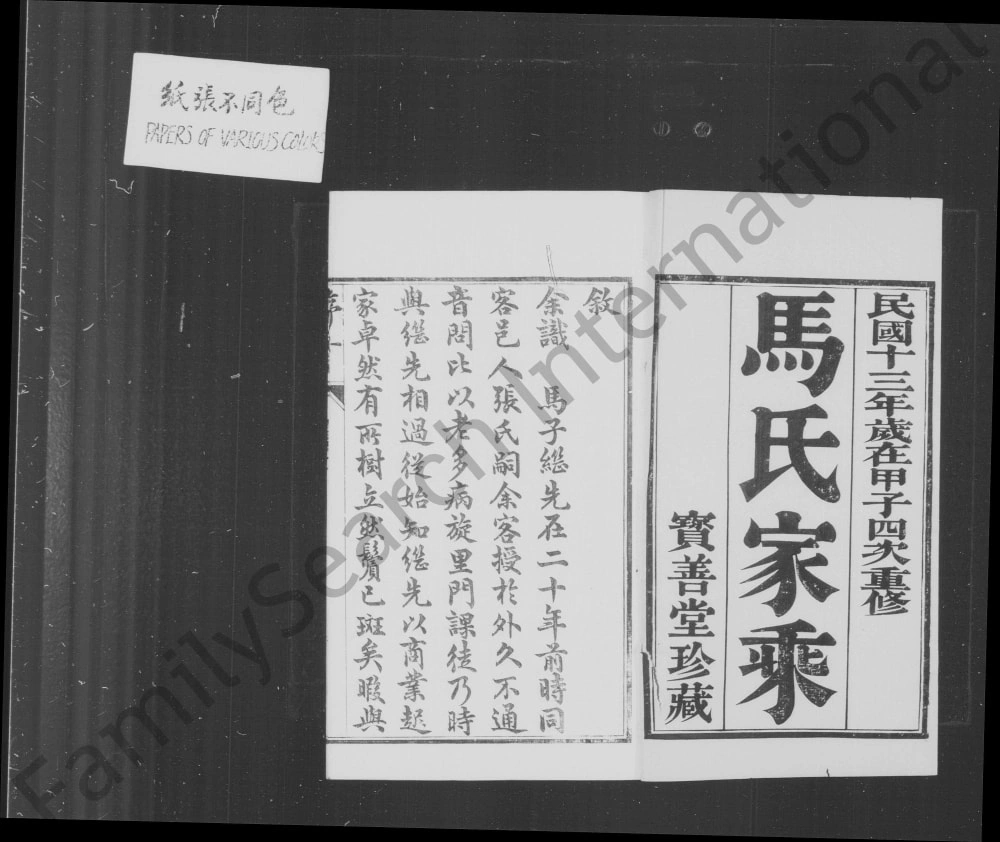 紙張不同色
PAPERS OF VARIOUS COLORS
民國十三年歲在甲子四次重修
馬氏家乘
寶善堂珍藏
敘
余識 馬子繼先在二十年前時同
客邑人張氏嗣余客授於外久不通
音問比以老多病旋里門課徒乃時
與繼先相過從始知繼先以商業起
家卓然有所樹立然鬢已斑矣暇與
FamilySearch International